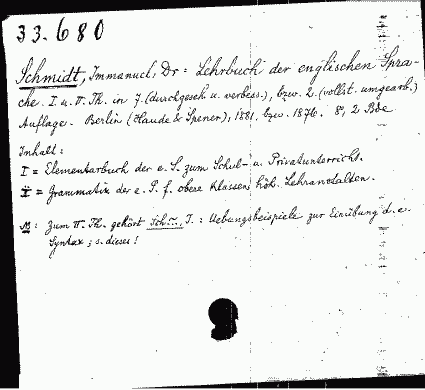 33.680
Schmidt, Immanuel, Dr = Lehrbuch der englischen Spra-
che. I. u. II. Th. in 7. (durchgeseh. u. verbess.), bzw. 2. (vollst. umgearb.)
Auflage. Berlin (Haude & Spener), 1881, bzw. 1876. 8°, 2 Bde
Inhalt:
I = Elementarbuch der e. S. zum Schul- u. Privatunterricht.
II = Grammatik der e. S. f. obere Klassen höh. Lehranstalten.
NB: Zum II. Th. gehört Sch~., I.: Uebungsbeispiele zur Einübung d. e.
Syntax; s. dieses!